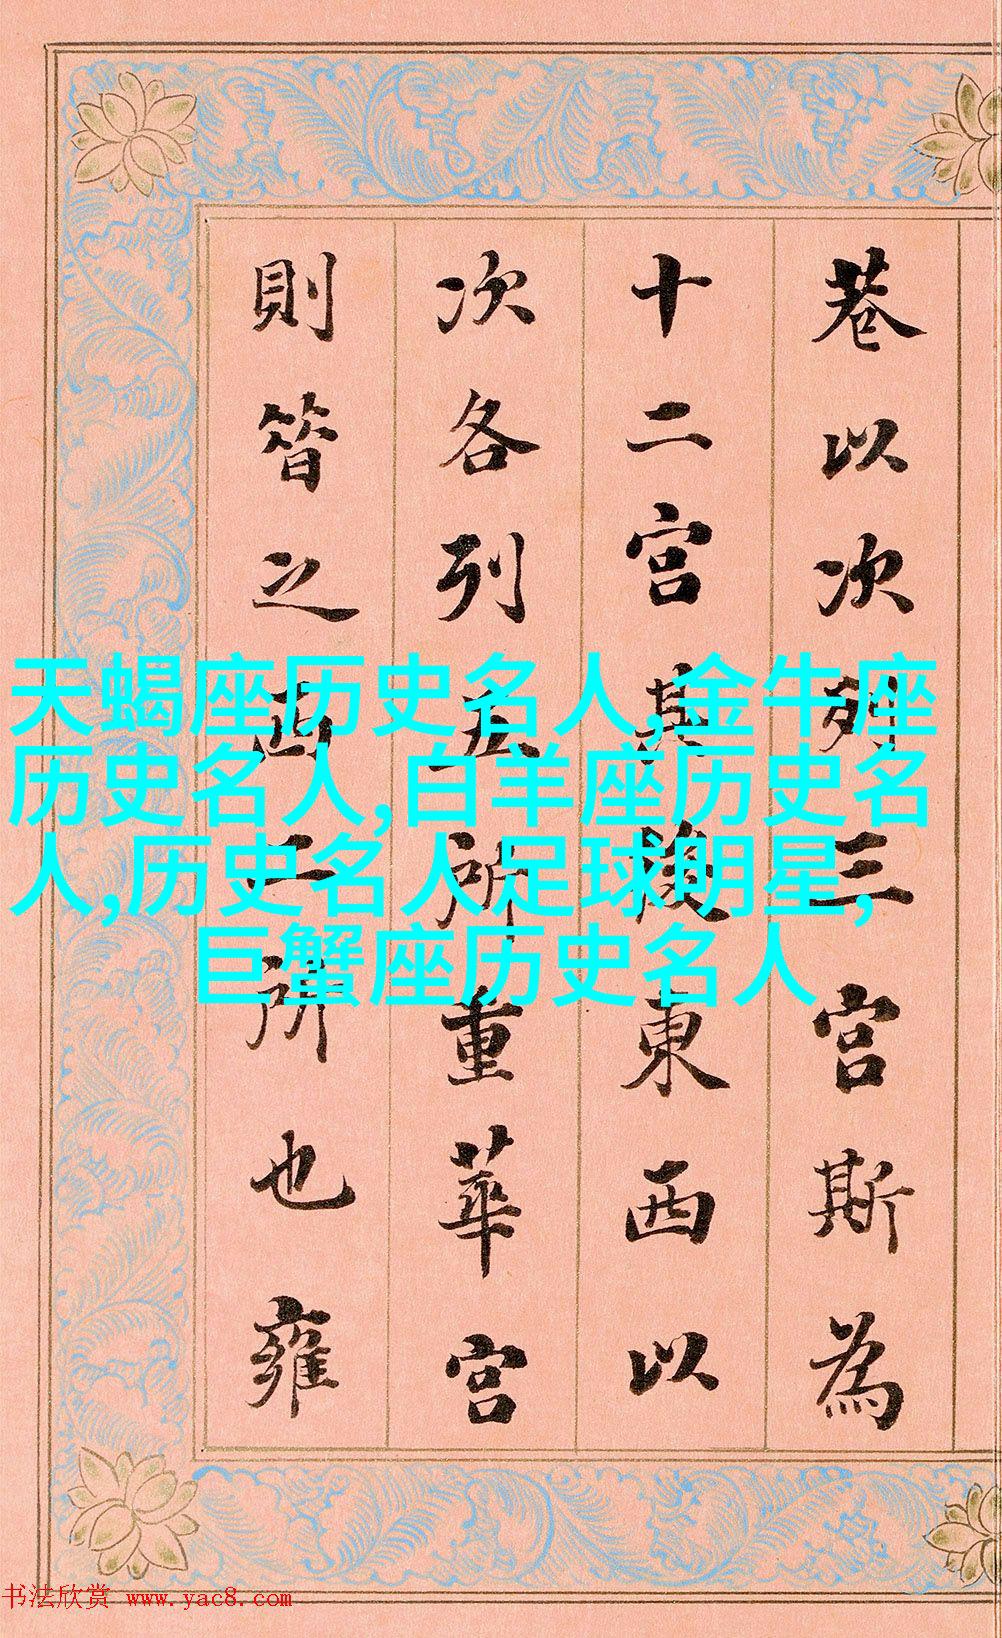 巷以次列三宮斯為
十二宮其後東西以
次各列五所重華宮
則昔之西二所也雍
天蝎座历史名人,金牛座
历史名人,白羊座历史名
人,历史名人足球明星,
巨蟹座历史名人
书法欣赏 www.yac8.com